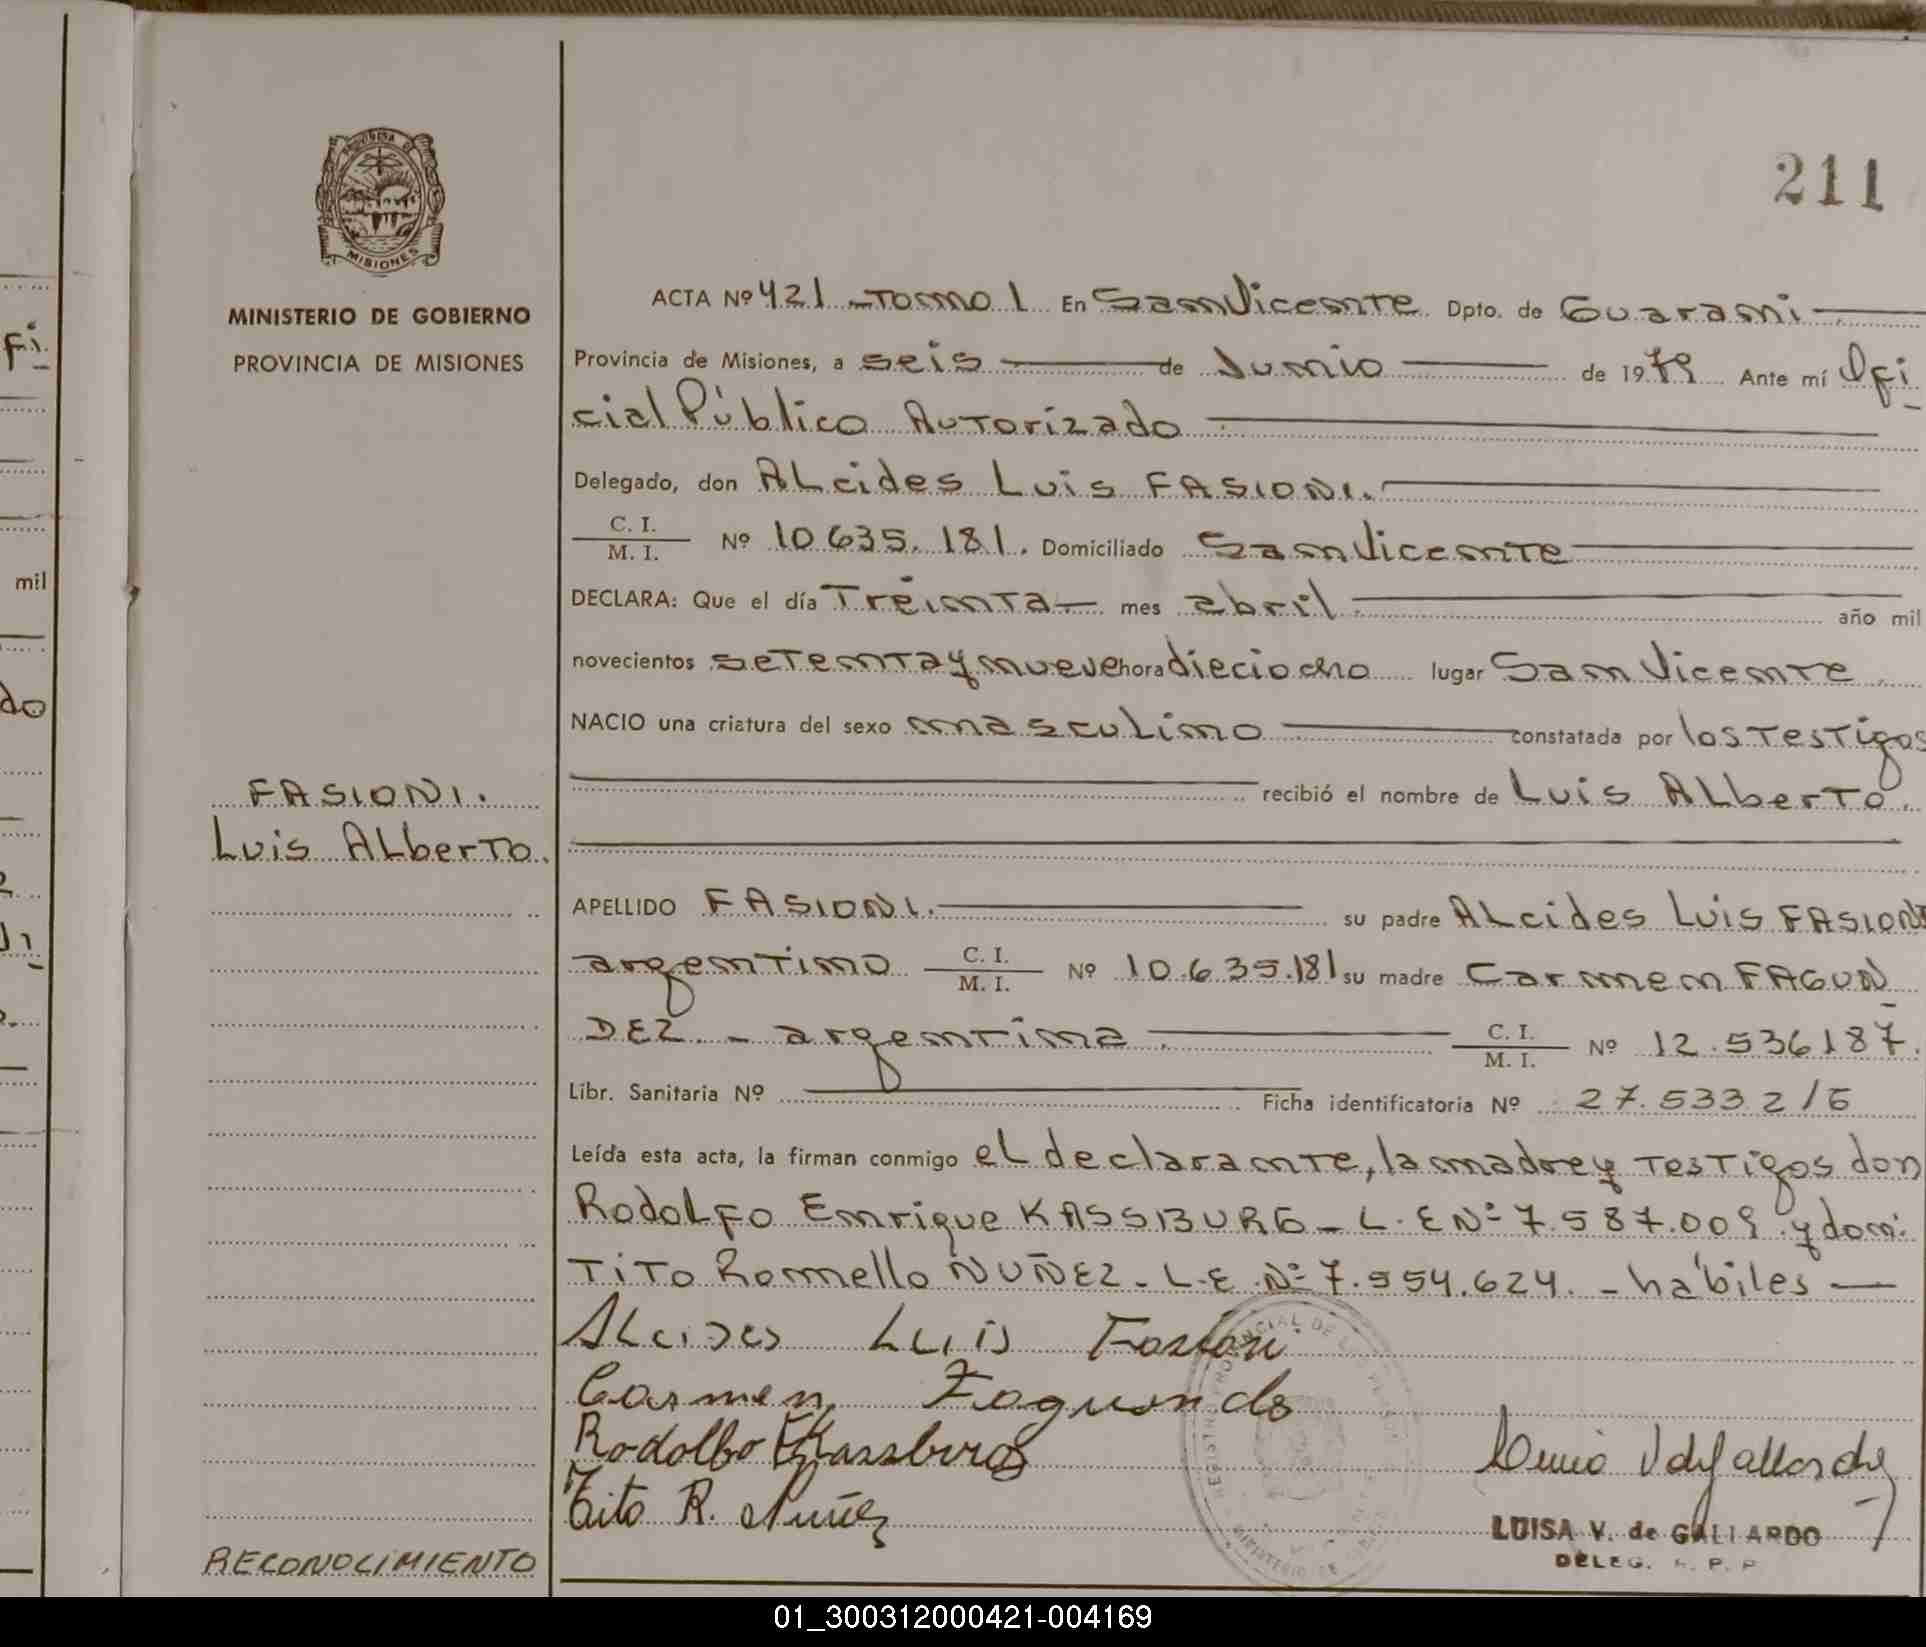 211
PROVINCIA DE
MISIONES
MINISTERIO DE GOBIERNO
PROVINCIA DE MISIONES
ACTA Nº 421 - Tomo 1 En San Vicente Dpto. de Guarani
Provincia de Misiones, a seis de Junio de 1979 Ante mí Ofi
cial Público Autorizado
Delegado, don Alcides Luis FASIONI.
C. I.
M. I. Nº 10 635. 181. Domiciliado San Vicente
DECLARA: Que el día Treinta mes abril año mil
novecientos setenta y nueve hora dieciocho lugar San Vicente
NACIO una criatura del sexo masculino constatada por los testigos
recibió el nombre de Luis Alberto.
FASIONI.
Luis Alberto.
APELLIDO FASIONI. su padre Alcides Luis FASIONI
argentino C. I.
M. I. Nº 10.635.181 su madre Carmen FAGUN
DEZ - argentina C. I.
M. I. Nº 12.536187.
Libr. Sanitaria Nº Ficha identificatoria Nº 27.533 2/6
Leída esta acta, la firman conmigo el declarante, la madre y testigos don
Rodolfo Enrique KASSBURG - L.E Nº 7.587.009 y don:
Tito Romello NUÑEZ - L.E. Nº 7.554.624. - hábiles
Alcides Luis Fasioni
Carmen Fagundes
Rodolfo E Kassburg
Tito R. Nuñez
LUISA V. de GALLARDO
DELEG. R. P. P
RECONOCIMIENTO
mil
do
fi
01_300312000421-004169